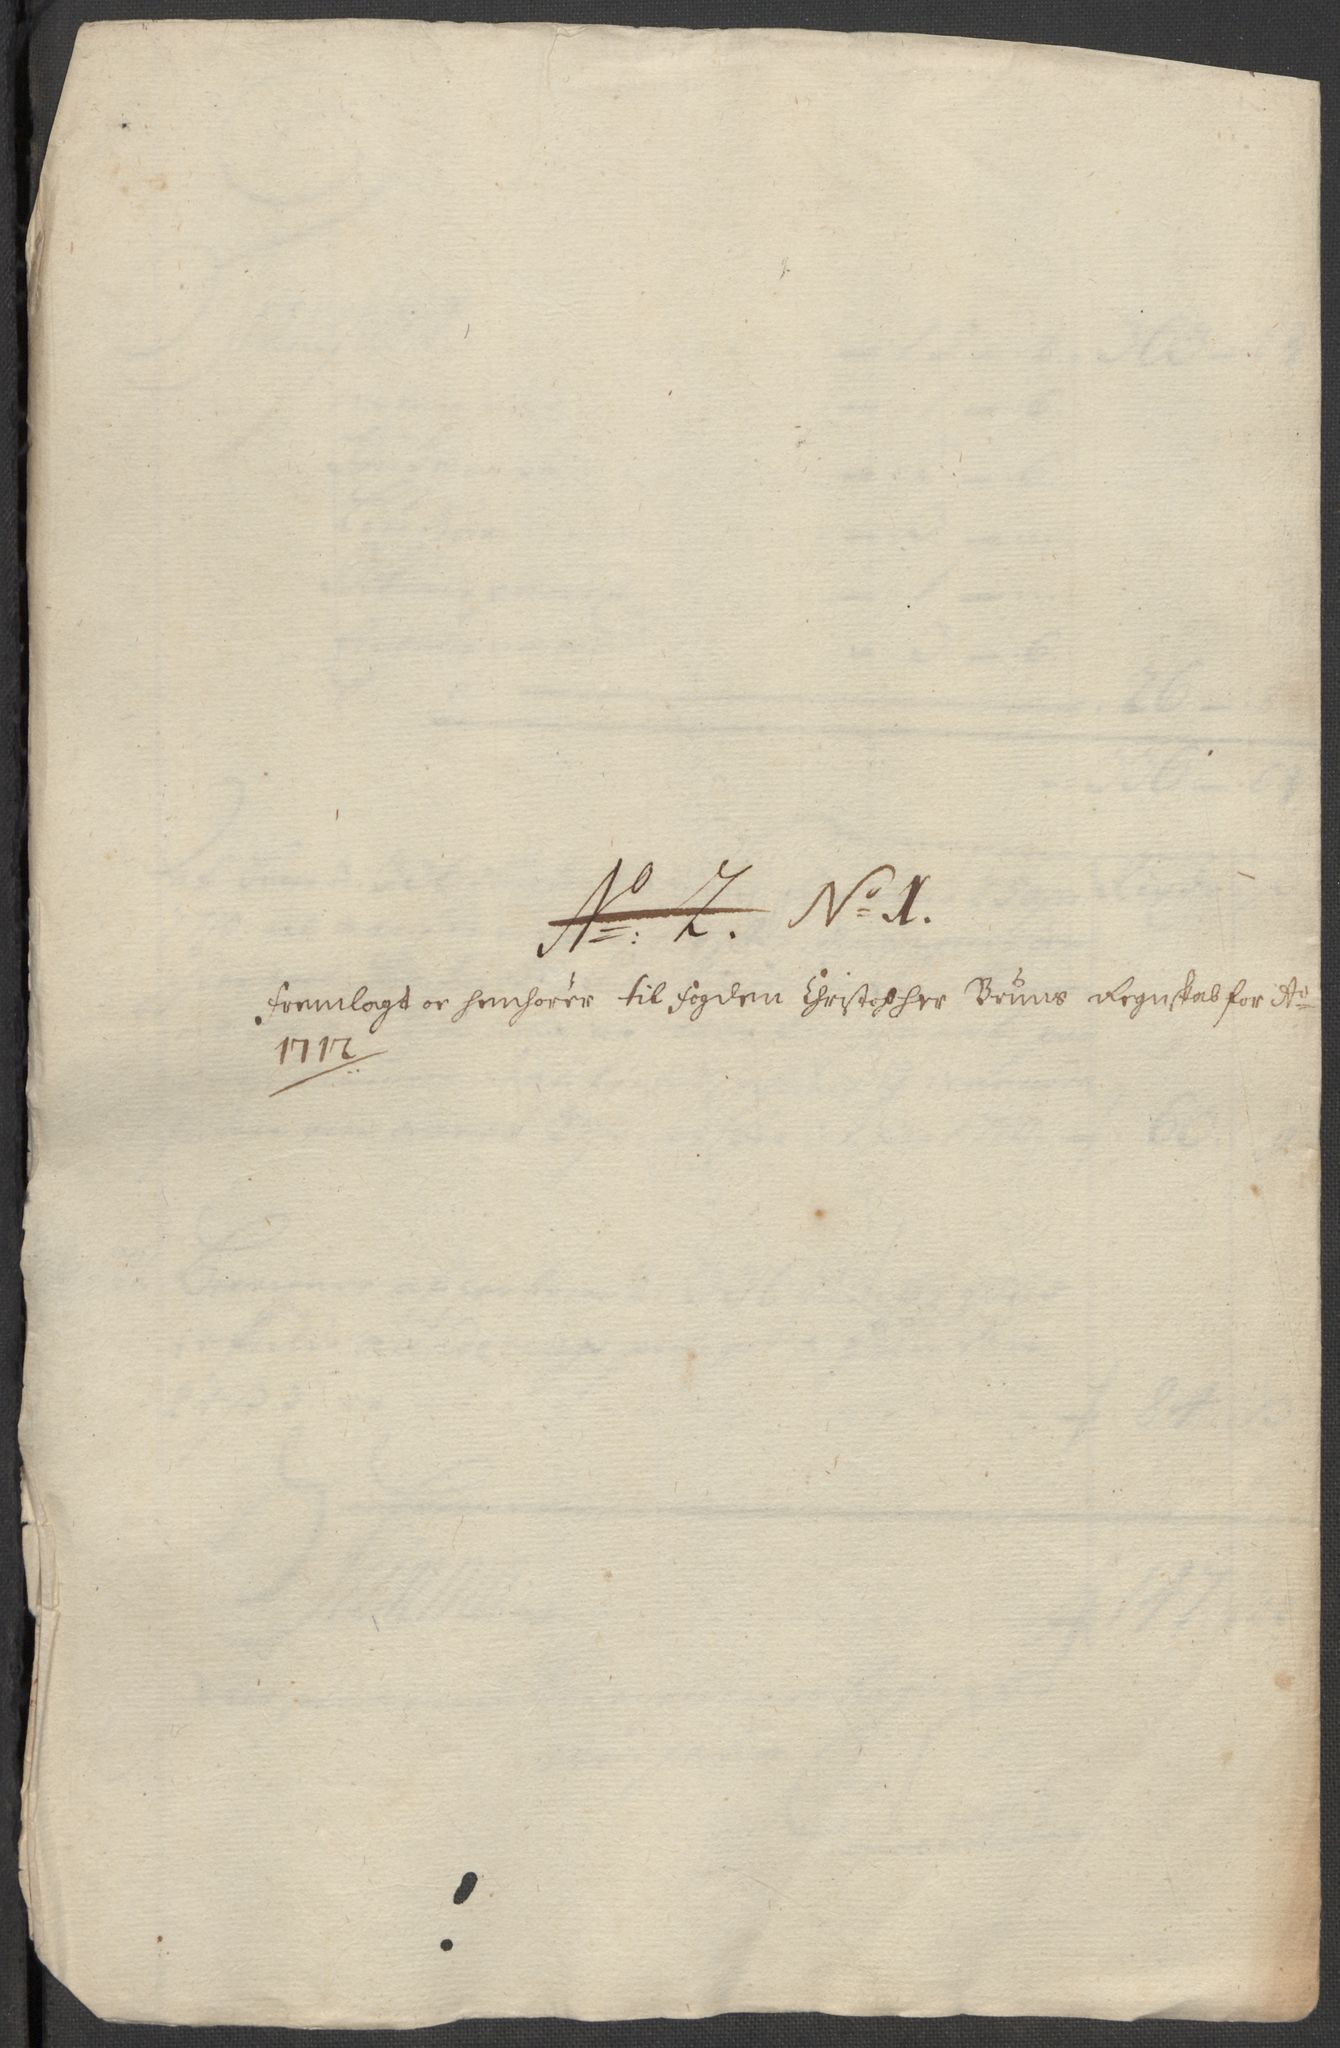 No: 7. No 1.
Fremlagt oc henhörer til Fogden Christopher Bruns Regnskab for Ao
1712